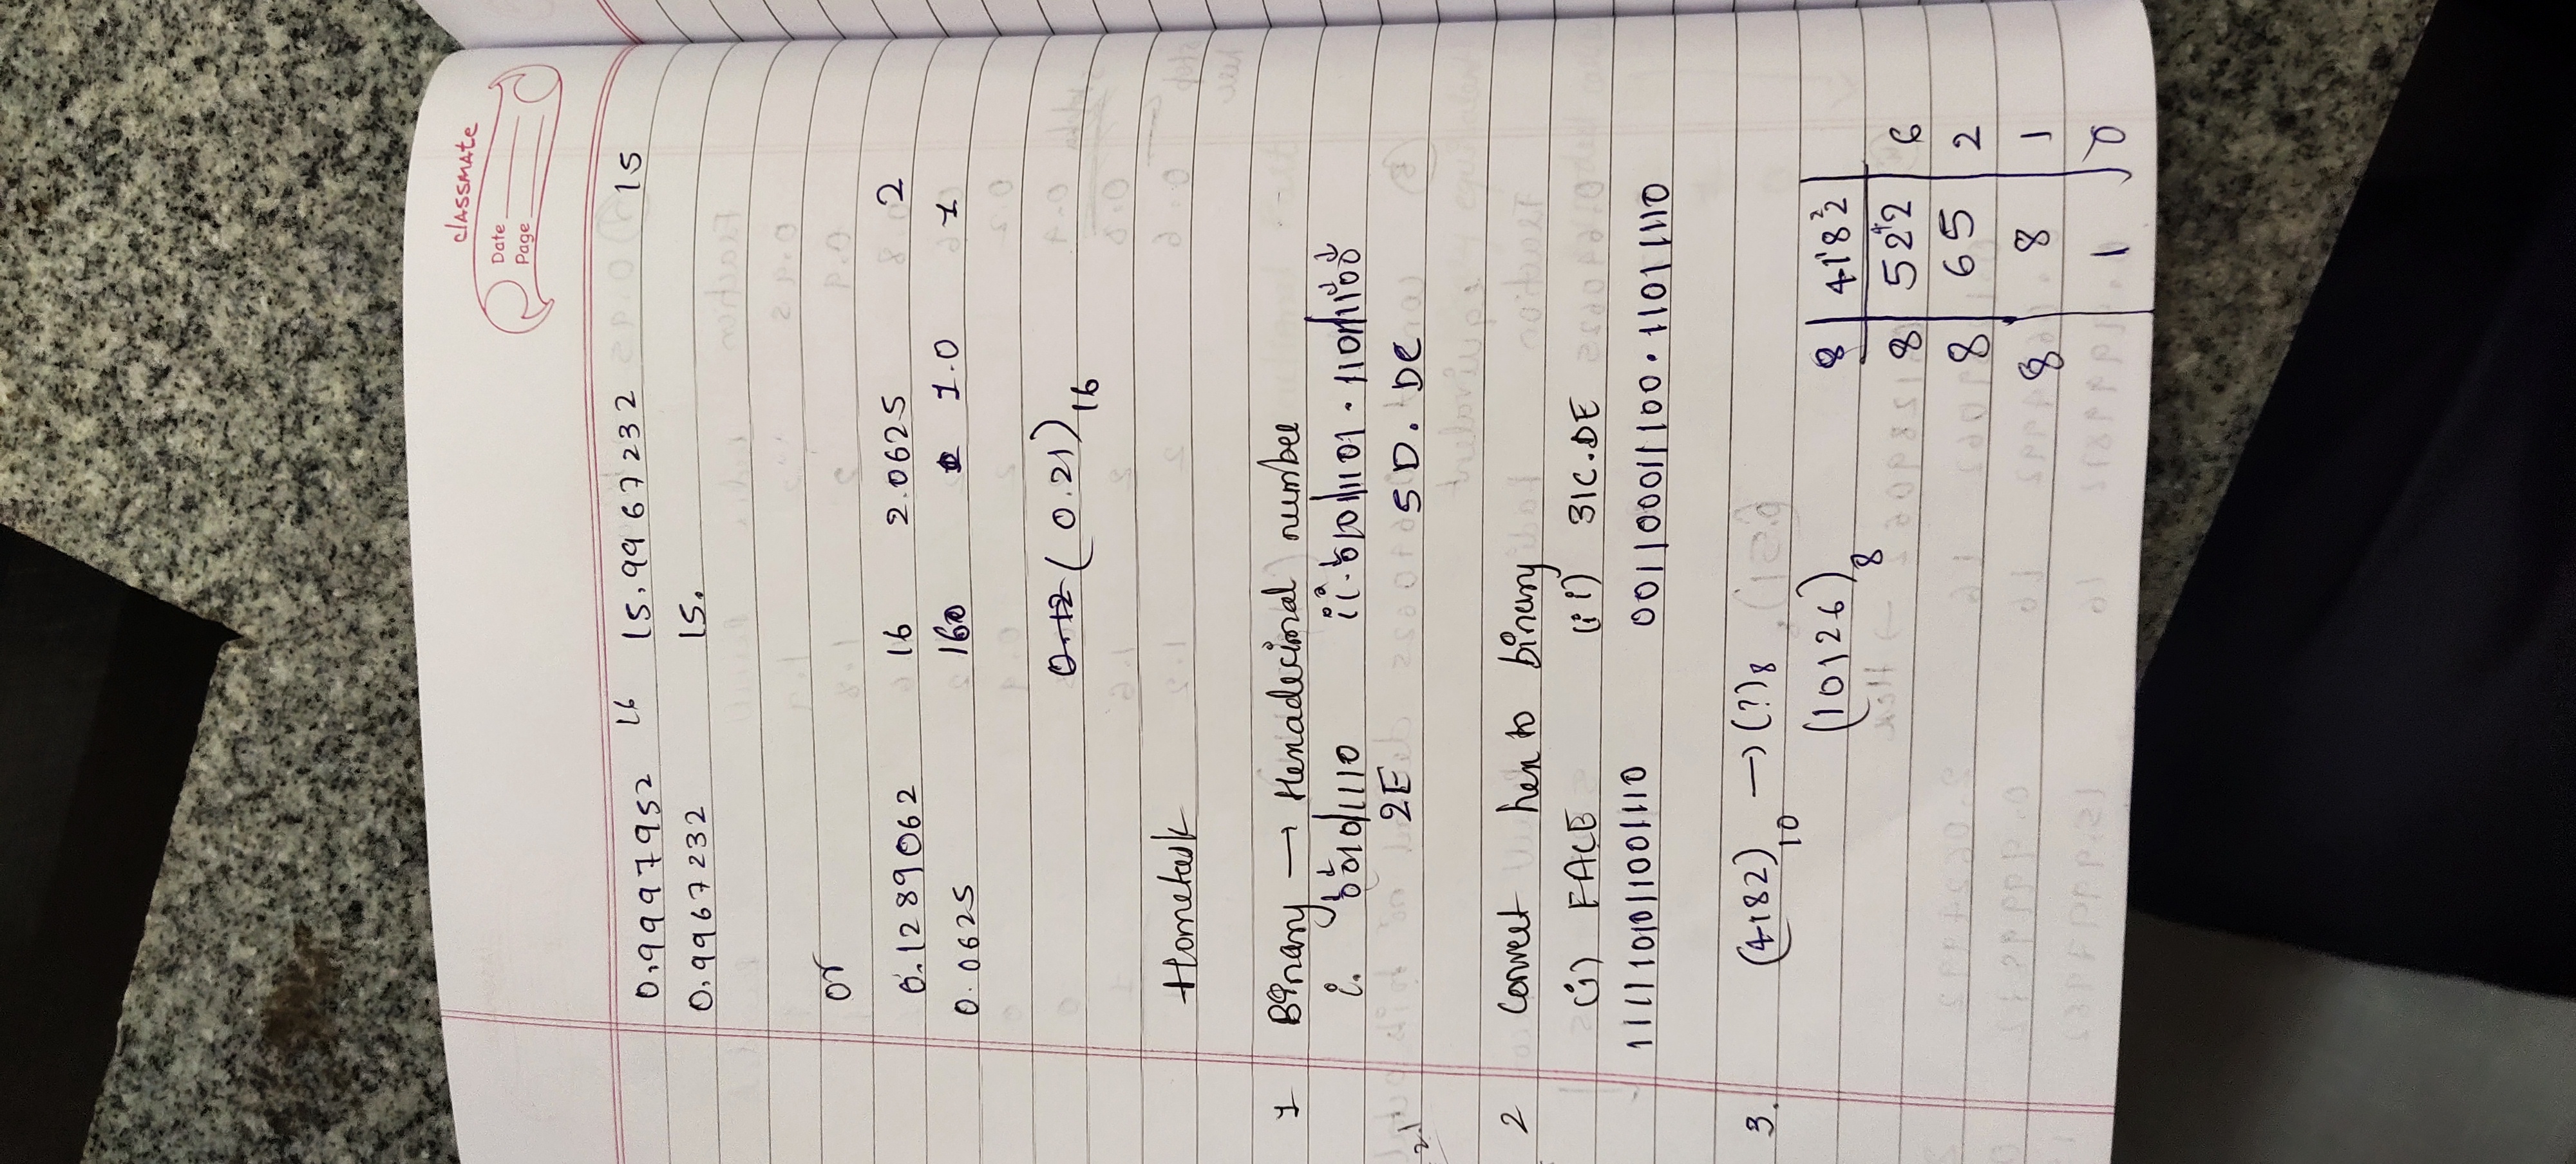 classmate
Date
Page
0.9997952 16 15.9967232 15
0.9967232 15.
or
0.1289062 16 2.0625 2
0.0625 160 1.0 1
0.12 (0.21)16
Hometask
1 Binary → Hexadecimal number
i. 0010/1110 ii. 0101/1101 . 1101/1100
2E 5D. DC
2.1
2 Convert hex to binary
(i) FACE (ii) 31C.DE
1111101011001110 001100011100.11011110
3. (4182)10 → (?)8
(10126)8 8 4182
8 522 6
8 65 2
8 8 1
1 0